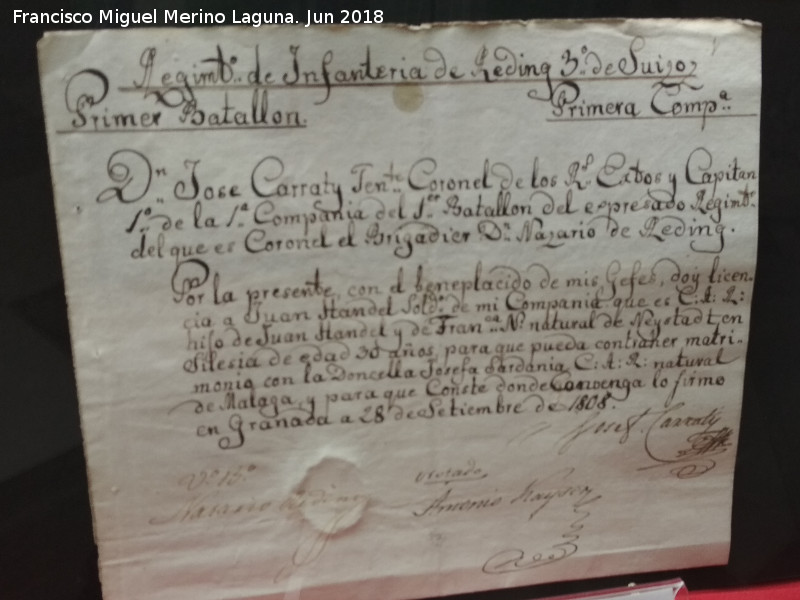 Francisco Miguel Merino Laguna. Jun 2018
Regimto. de Infanteria de Reding 3o. de Suizos
Primer Batallon. Primera Compa.
Dn. Jose Carraty Tente. Coronel de los Rs. Extos y Capitan
1o. de la 1a. Compañia del 1er. Batallon del expresado Regimto.
del que es Coronel el Brigadier Dn. Nazario de Reding.
Por la presente, con el beneplacido de mis Gefes, doy licen-
cia a Juan Handel Soldo. de mi Compania que es C: A: R:
hijo de Juan Handel y de Franca. N. natural de Neystadt, en
Silesia de edad 30 años, para que pueda contraher matri-
monio con la Doncella Josefa Sardania, C: A: R: natural
de Malaga, y para que Conste donde Convenga lo firmo
en Granada a 28 de Setiembre de 1808.
Josef. Carraty
Vo. Bo.
Nazario Reding
Antonio Kayser